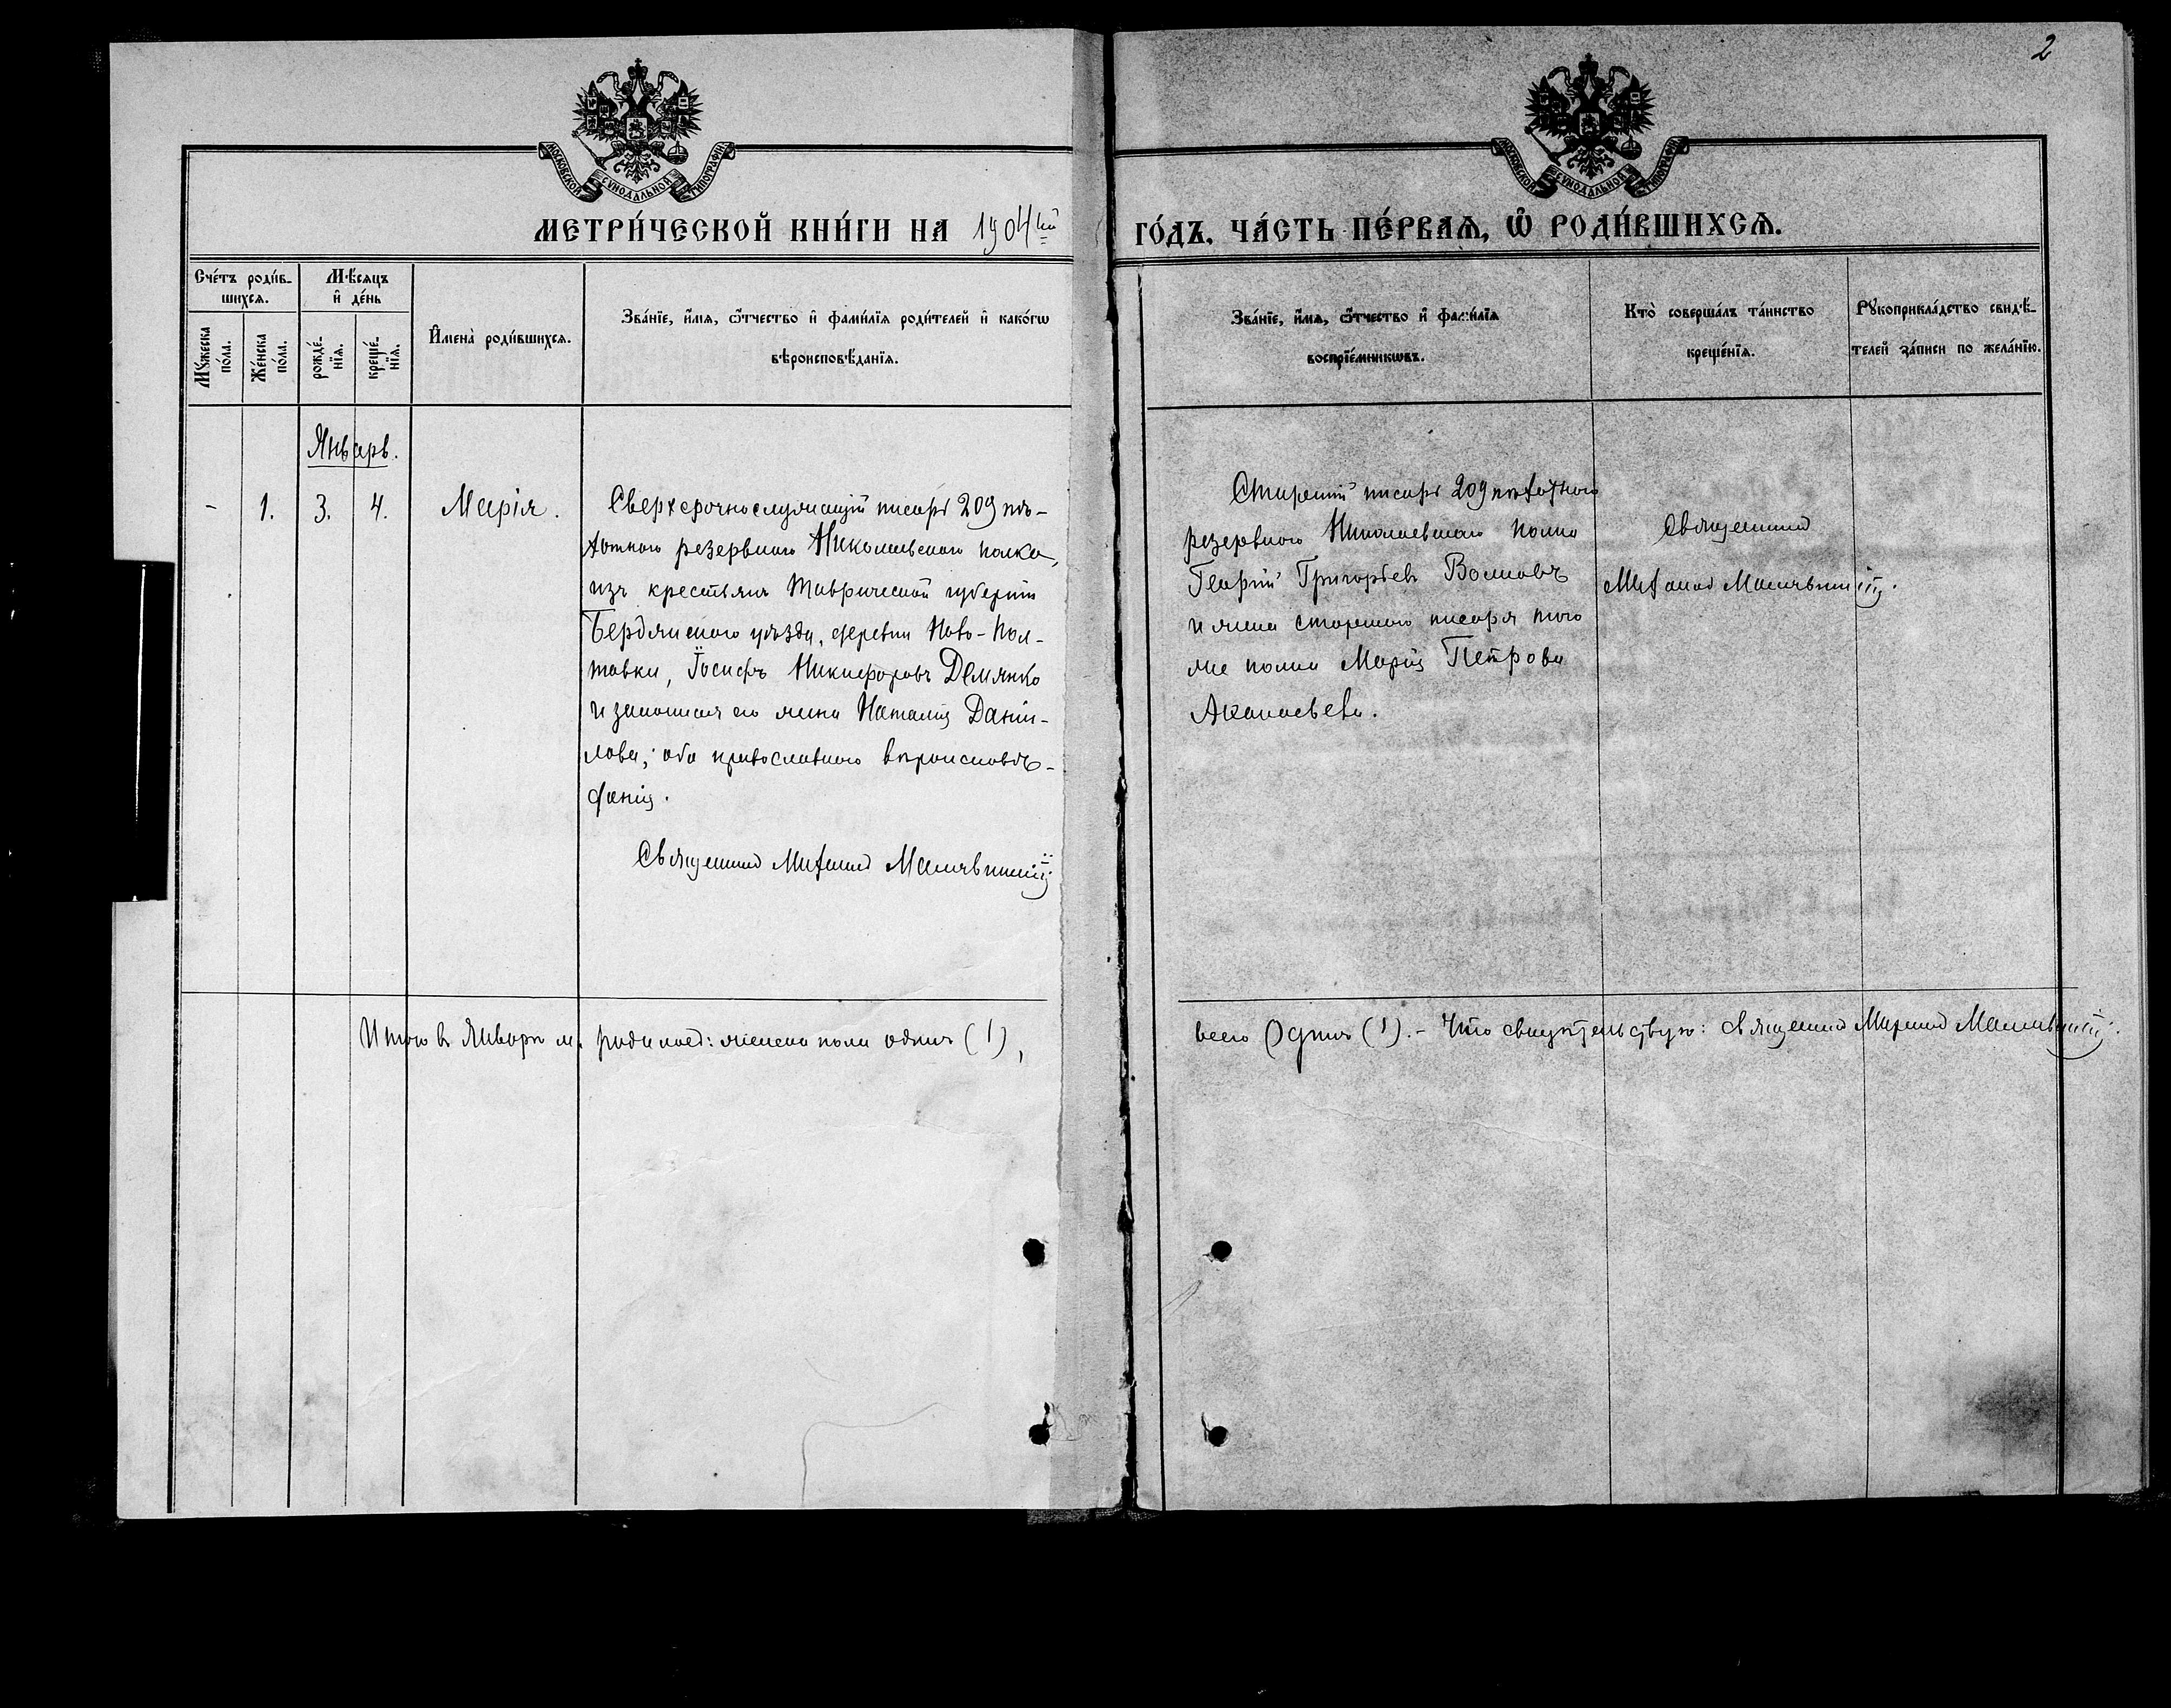 2
МОСКОВСКОЙ СѴНОДАЛЬНОЙ ТИПОГРАФІИ
МОСКОВСКОЙ СѴНОДАЛЬНОЙ ТИПОГРАФІИ
МЕТРИ́ЧЕСКОЙ КНИ́ГИ НА 1904ый
ГО́ДЪ, ЧА́СТЬ ПЕ́РВАѦ, Ѽ РОДИ́ВШИХСѦ.
Сче́тъ роди́в-
шихсѧ.
Мѣ́сяцъ
и҆ де́нь
Мꙋ́жеска по́ла.
Же́нска по́ла.
рожде́-
нїѧ.
креще́-
нїѧ.
И҆мена̀ роди́вшихсѧ.
Зва́нїе, и҆́мѧ, ѻ҆́тчество и҆ фами́лїѧ роди́телей и҆ како́гѡ
вѣроисповѣ́данїѧ.
Зва́нїе, и҆́мѧ, ѻ҆́тчество и҆ фами́лїѧ
воспрїе́мникѡвъ.
Кто̀ соверша́лъ та́инство
креще́нїѧ.
Рꙋкоприкла́дство свидѣ́-
телей за́писи по жела́нїю.
Январь.
- 1. 3. 4. Марія.
Сверхсрочнослужащій писарь 209 пѣ-
хотнаго резервнаго Николаевскаго полка,
изъ крестьянъ Таврической губерніи
Бердянскаго уѣзда, деревни Ново-Пол-
тавки, Іосифъ Никифоровъ Демянко
и законная его жена Наталія Даніи-
лова; оба православнаго вѣроисповѣ-
данія.
Священникъ Михаилъ
Старшій писарь 209 пѣхотнаго
резервнаго Николаевскаго полка
Георгій Григорьевъ Волковъ
и жена старшаго писаря того
же полка Марія Петрова
Аѳанасьева.
Священникъ
Михаилъ
Итого въ Январѣ м. родилось: женска пола одна (1),
всего одна (1). - Что свидѣтельствую: Священникъ Михаилъ